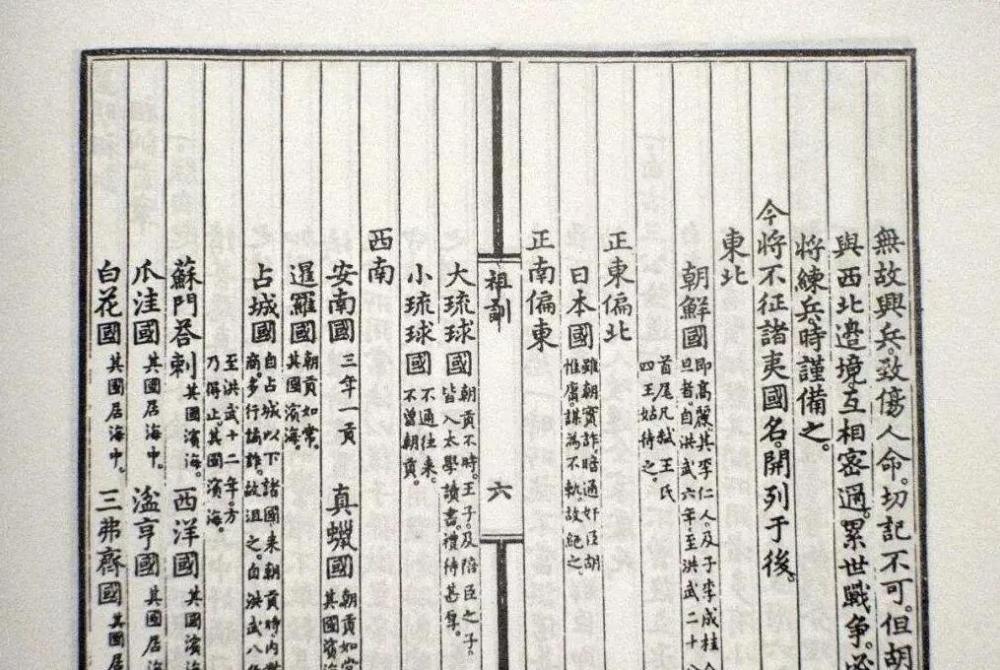 無故興兵。致傷人命。切記不可。但胡
與西北邉境互相密邇。累世戰争。必
將練兵時謹備之。
今將不征諸夷國名。開列于後。
東北
朝鮮國
即髙麗。其李仁人。及子李成桂今
旦者。自洪武六年。至洪武二十八
首尾凡弑王氏
四王姑待之。
正東偏北
日本國
雖朝實詐。暗通奸臣胡
惟庸。謀為不軌故絶之。
正南偏東
祖訓
六
大琉球國
朝貢不時。王子。及陪臣之子。
皆入太學讀書。禮待甚厚。
小琉球國
不通往来。
不曾朝貢。
西南
安南國 三年一貢 真蠟國
朝貢如常
其國濱海
暹羅國
朝貢如常。
其國濱海。
占城國
自占城以下諸國来朝貢時。内
商。多行譎詐。故沮之。自洪武八
至洪武十二年。方
乃得止。其國濱海。
蘇門荅剌 其國濱海。 西洋國 其國濱海
爪洼國 其國居海中。 湓亨國 其國居海
白花國 其國居海中。 三弗齊國 其國居